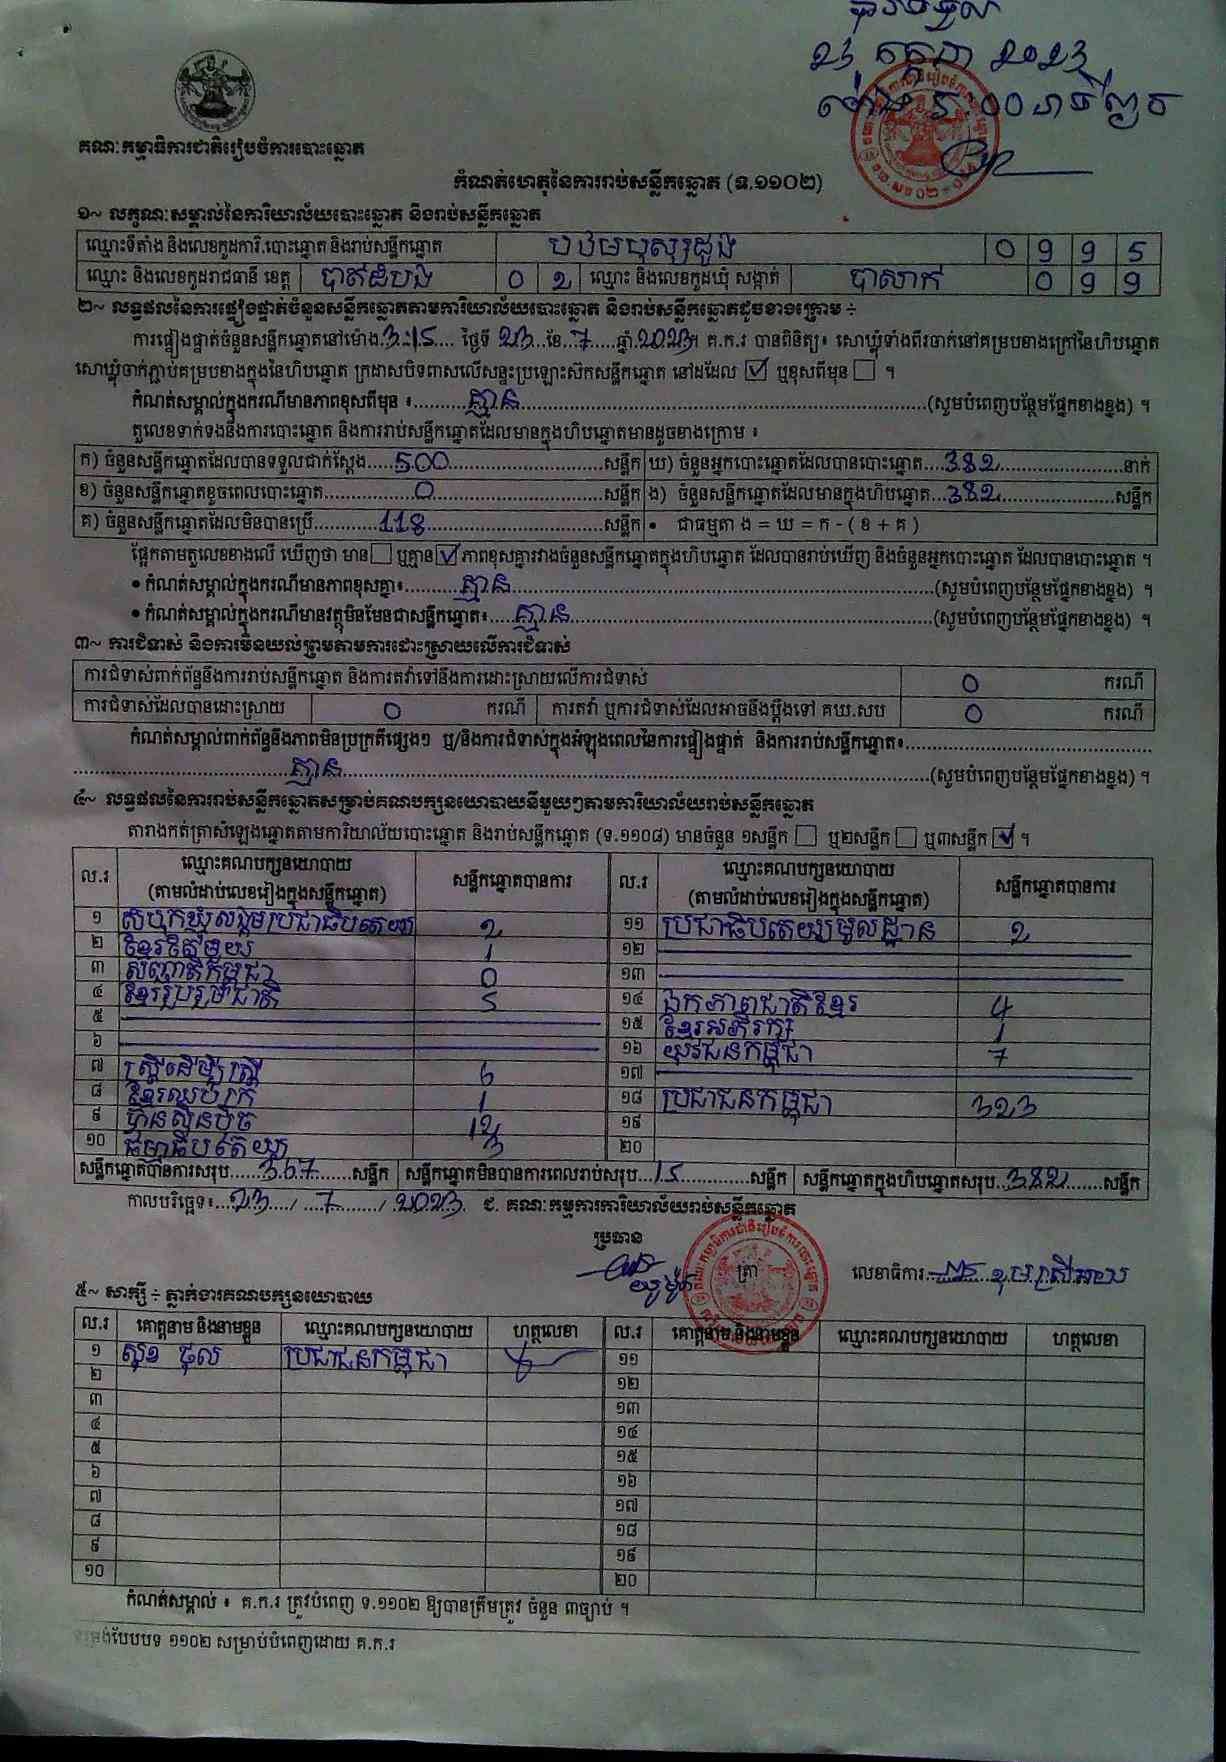 ២៣ កក្កដា ២០២៣
គណៈកម្មាធិការជាតិរៀបចំការបោះឆ្នោត
កំណត់ហេតុនៃការរាប់សន្លឹកឆ្នោត (ទ.១១០២)
១~ លក្ខណៈសម្គាល់នៃការិយាល័យបោះឆ្នោត និងរាប់សន្លឹកឆ្នោត
ឈ្មោះទីតាំង និងលេខកូដការិ.បោះឆ្នោត និងរាប់សន្លឹកឆ្នោត 0 9 9 5
ឈ្មោះ និងលេខកូដរាជធានី ខេត្ត បាត់ដំបង 0 2 ឈ្មោះ និងលេខកូដឃុំ សង្កាត់ បាសាក់ 0 9 9
២~ លទ្ធផលនៃការផ្ទៀងផ្ទាត់ចំនួនសន្លឹកឆ្នោតតាមការិយាល័យបោះឆ្នោត និងរាប់សន្លឹកឆ្នោតដូចខាងក្រោម ÷
ការផ្ទៀងផ្ទាត់ចំនួនសន្លឹកឆ្នោតនៅម៉ោង 3:15 ថ្ងៃទី 23 ខែ 7 ឆ្នាំ 2023។ គ.ក.រ បានពិនិត្យ៖ សោឃ្លុំទាំងពីរចាក់នៅគម្របខាងក្រៅនៃហិបឆ្នោត
សោឃ្លុំចាក់ភ្ជាប់គម្របខាងក្នុងនៃហិបឆ្នោត ក្រដាសបិទពាសលើសន្ទះប្រឡោះស៊កសន្លឹកឆ្នោត នៅដដែល ☑ ឬខុសពីមុន ☐ ។
កំណត់សម្គាល់ក្នុងករណីមានភាពខុសពីមុន ៖ គ្មាន (សូមបំពេញបន្ថែមផ្នែកខាងខ្នង) ។
តួលេខទាក់ទងនឹងការបោះឆ្នោត និងការរាប់សន្លឹកឆ្នោតដែលមានក្នុងហិបឆ្នោតមានដូចខាងក្រោម ៖
ក) ចំនួនសន្លឹកឆ្នោតដែលបានទទួលជាក់ស្តែង 500 សន្លឹក ឃ) ចំនួនអ្នកបោះឆ្នោតដែលបានបោះឆ្នោត 382 នាក់
ខ) ចំនួនសន្លឹកឆ្នោតខូចពេលបោះឆ្នោត 0 សន្លឹក ង) ចំនួនសន្លឹកឆ្នោតដែលមានក្នុងហិបឆ្នោត 382 សន្លឹក
គ) ចំនួនសន្លឹកឆ្នោតដែលមិនបានប្រើ 118 សន្លឹក • ជាធម្មតា ង = ឃ = ក - ( ខ + គ )
ផ្អែកតាមតួលេខខាងលើ ឃើញថា មាន ☐ ឬគ្មាន ☑ ភាពខុសគ្នារវាងចំនួនសន្លឹកឆ្នោតក្នុងហិបឆ្នោត ដែលបានរាប់ឃើញ និងចំនួនអ្នកបោះឆ្នោត ដែលបានបោះឆ្នោត ។
• កំណត់សម្គាល់ក្នុងករណីមានភាពខុសគ្នា៖ គ្មាន (សូមបំពេញបន្ថែមផ្នែកខាងខ្នង) ។
• កំណត់សម្គាល់ក្នុងករណីមានវត្ថុមិនមែនជាសន្លឹកឆ្នោត៖ គ្មាន (សូមបំពេញបន្ថែមផ្នែកខាងខ្នង) ។
៣~ ការជំទាស់ និងការមិនយល់ព្រមតាមការដោះស្រាយលើការជំទាស់
ការជំទាស់ពាក់ព័ន្ធនឹងការរាប់សន្លឹកឆ្នោត និងការតវ៉ាទៅនឹងការដោះស្រាយលើការជំទាស់ 0 ករណី
ការជំទាស់ដែលបានដោះស្រាយ 0 ករណី ការតវ៉ា ឬការជំទាស់ដែលអាចនឹងប្តឹងទៅ គឃ.សប 0 ករណី
កំណត់សម្គាល់ពាក់ព័ន្ធនឹងភាពមិនប្រក្រតីផ្សេងៗ ឬ/និងការជំទាស់ក្នុងអំឡុងពេលនៃការផ្ទៀងផ្ទាត់ និងការរាប់សន្លឹកឆ្នោត៖
គ្មាន (សូមបំពេញបន្ថែមផ្នែកខាងខ្នង) ។
៤~ លទ្ធផលនៃការរាប់សន្លឹកឆ្នោតសម្រាប់គណបក្សនយោបាយនីមួយៗតាមការិយាល័យរាប់សន្លឹកឆ្នោត
តារាងកត់ត្រាសំឡេងឆ្នោតតាមការិយាល័យបោះឆ្នោត និងរាប់សន្លឹកឆ្នោត (ទ.១១០៨) មានចំនួន ១សន្លឹក ☐ ឬ២សន្លឹក ☐ ឬ៣សន្លឹក ☑ ។
ល.រ ឈ្មោះគណបក្សនយោបាយ (តាមលំដាប់លេខរៀងក្នុងសន្លឹកឆ្នោត) សន្លឹកឆ្នោតបានការ ល.រ ឈ្មោះគណបក្សនយោបាយ (តាមលំដាប់លេខរៀងក្នុងសន្លឹកឆ្នោត) សន្លឹកឆ្នោតបានការ
១ សំបុកឃ្មុំសង្គមប្រជាធិបតេយ្យ 2 ១១ ប្រជាធិបតេយ្យមូលដ្ឋាន 2
២ ខ្មែរតែមួយ 1 ១២
៣ សញ្ជាតិកម្ពុជា 0 ១៣
៤ ខ្មែររួបរួមជាតិ 5 ១៤ ឯកភាពជាតិខ្មែរ 4
៥ ១៥ ខ្មែរអភិរក្ស 1
៦ ១៦ យុវជនកម្ពុជា 7
៧ ស្ត្រីដើម្បីស្ត្រី 6 ១៧
៨ ខ្មែរឈប់ក្រ 1 ១៨ ប្រជាជនកម្ពុជា 323
៩ ហ៊្វុនស៊ិនប៉ិច 12 ១៩
១០ ធម្មាធិបតេយ្យ 3 ២០
សន្លឹកឆ្នោតបានការសរុប 367 សន្លឹក សន្លឹកឆ្នោតមិនបានការពេលរាប់សរុប 15 សន្លឹក សន្លឹកឆ្នោតក្នុងហិបឆ្នោតសរុប 382 សន្លឹក
កាលបរិច្ឆេទ៖ 23 / 7 / 2023 ជ. គណៈកម្មការការិយាល័យរាប់សន្លឹកឆ្នោត
ប្រធាន
ត្រា
លេខាធិការ
៥~ សាក្សី ÷ ភ្នាក់ងារគណបក្សនយោបាយ
ល.រ គោត្តនាម និងនាមខ្លួន ឈ្មោះគណបក្សនយោបាយ ហត្ថលេខា ល.រ គោត្តនាម និងនាមខ្លួន ឈ្មោះគណបក្សនយោបាយ ហត្ថលេខា
១ សុខ ផុល ប្រជាជនកម្ពុជា ១១
២ ១២
៣ ១៣
៤ ១៤
៥ ១៥
៦ ១៦
៧ ១៧
៨ ១៨
៩ ១៩
១០ ២០
កំណត់សម្គាល់ ៖ គ.ក.រ ត្រូវបំពេញ ទ.១១០២ ឱ្យបានត្រឹមត្រូវ ចំនួន ៣ច្បាប់ ។
ទម្រង់បែបបទ ១១០២ សម្រាប់បំពេញដោយ គ.ក.រ